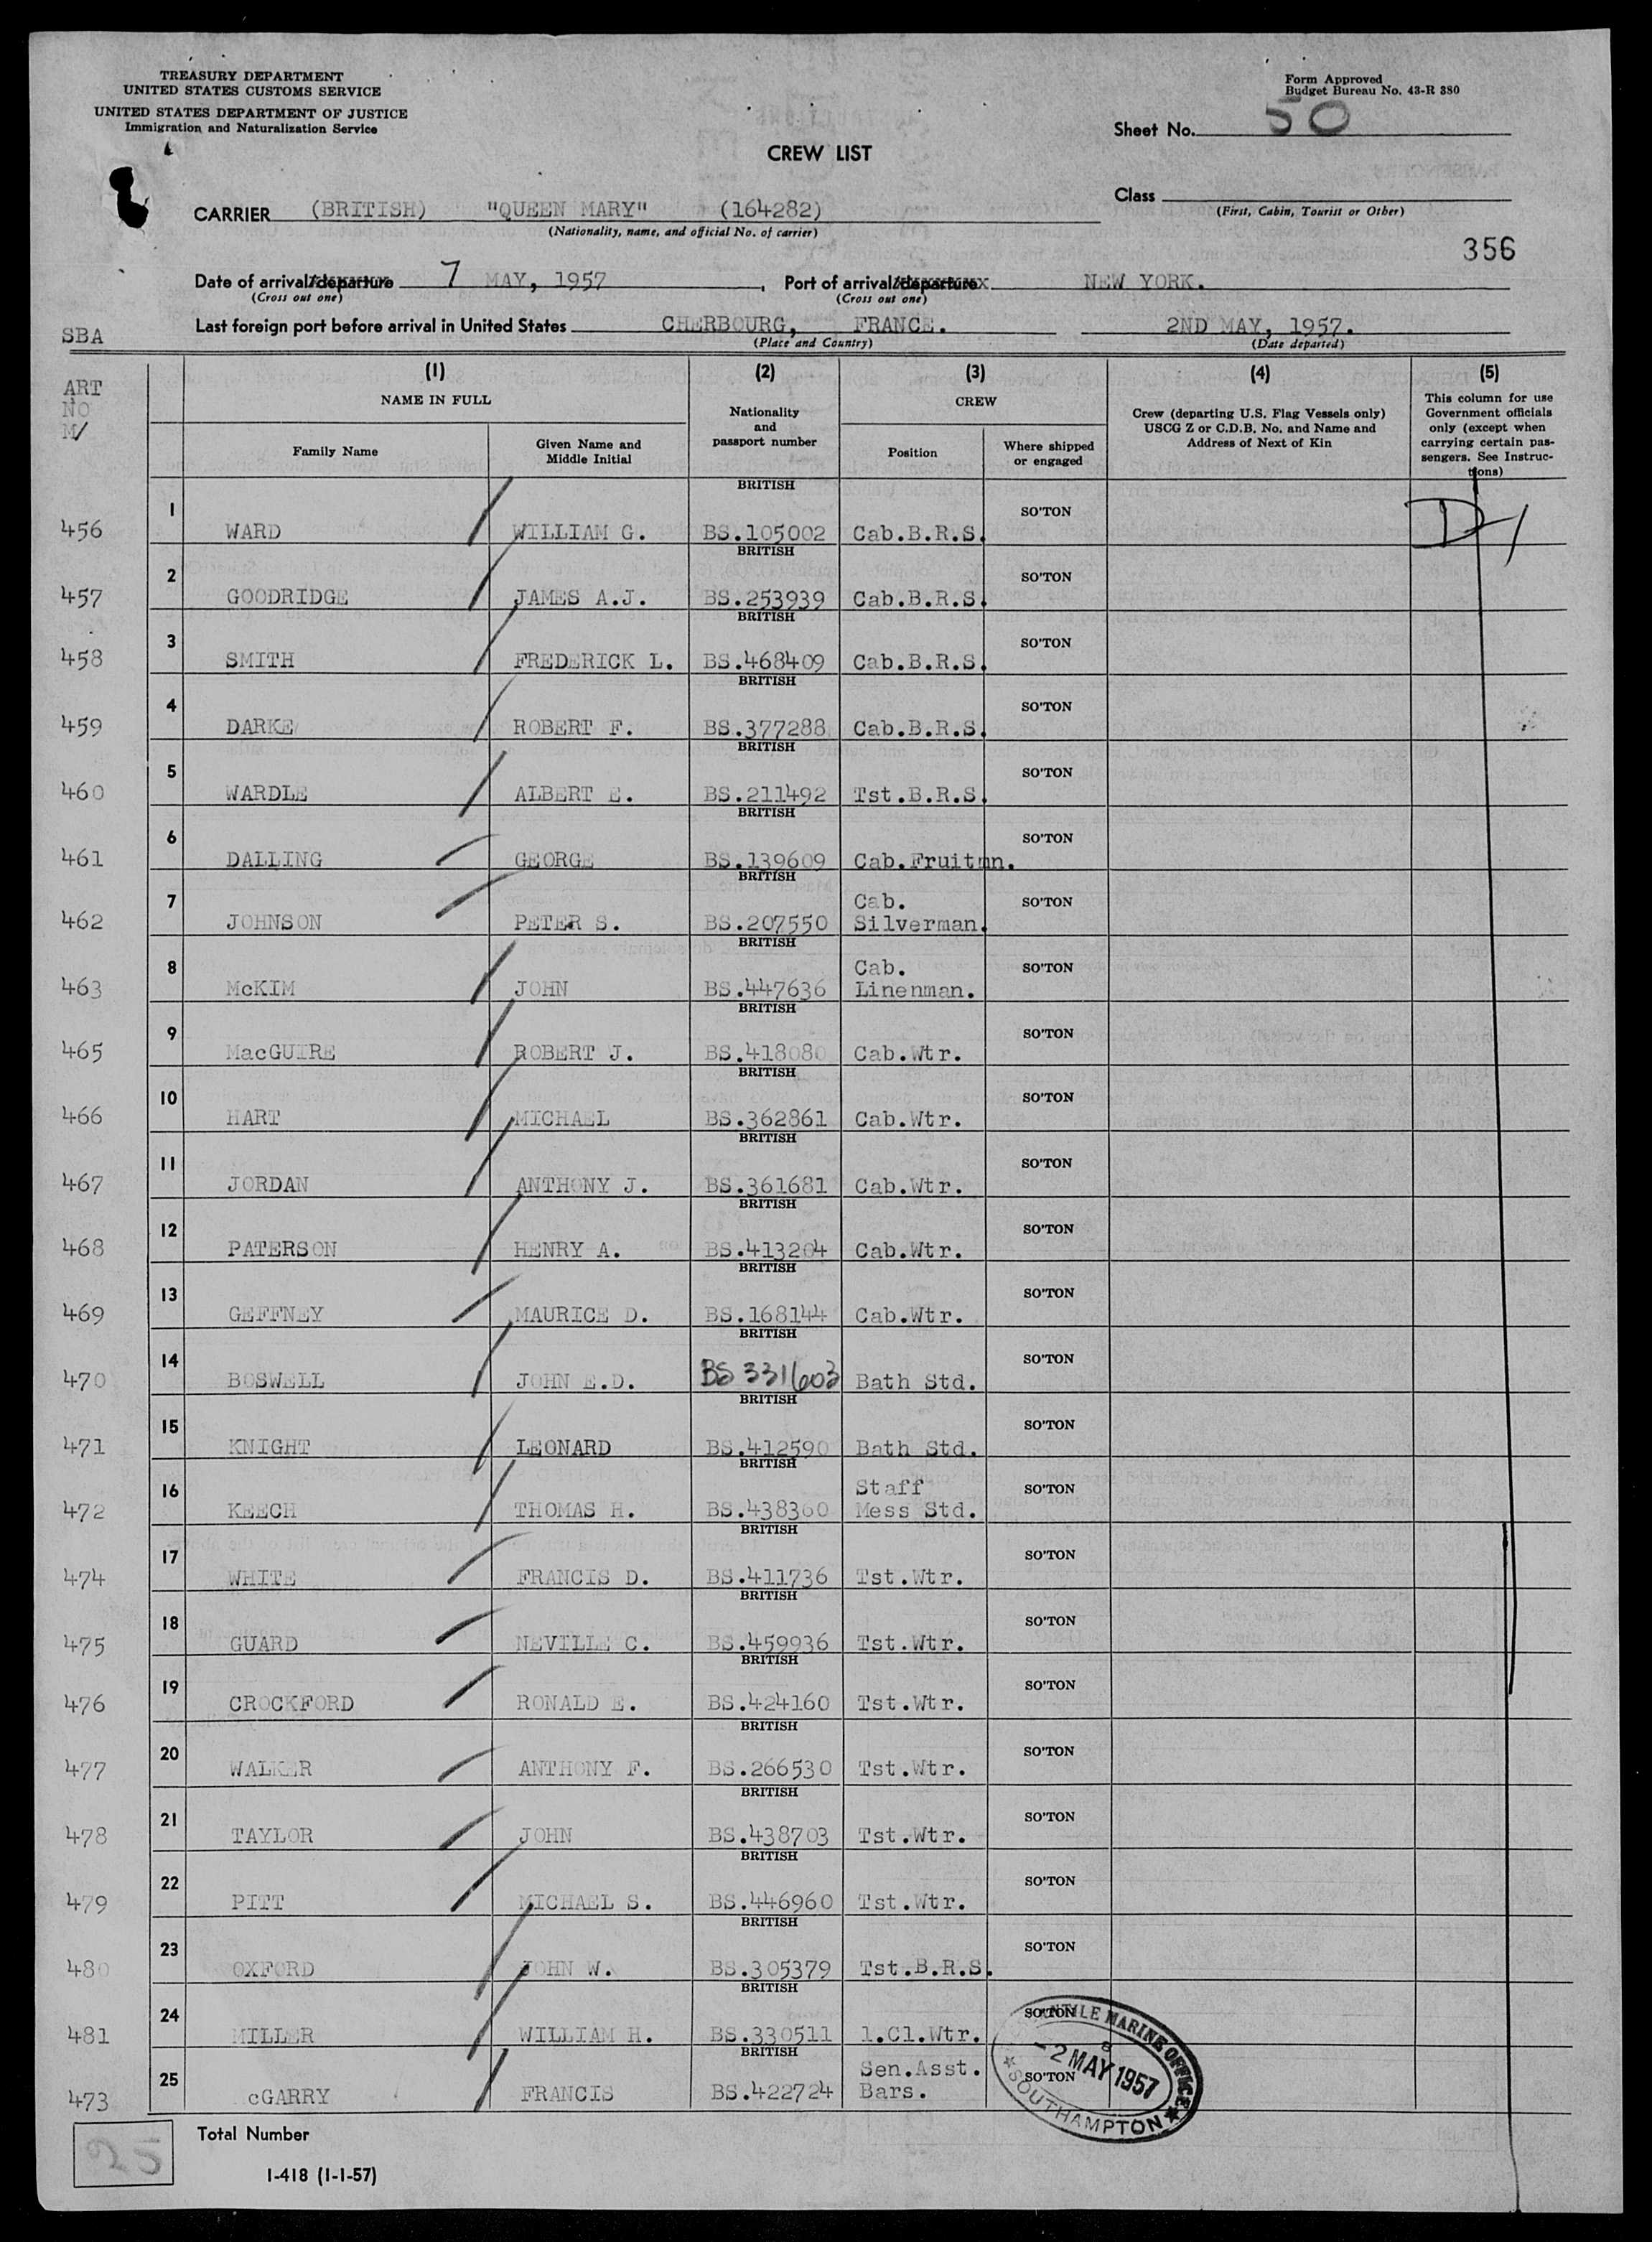 TREASURY DEPARTMENT
UNITED STATES CUSTOMS SERVICE
UNITED STATES DEPARTMENT OF JUSTICE
Immigration and Naturalization Service
Form Approved
Budget Bureau No. 43-R 380
Sheet No. 50
CREW LIST
Class
(First, Cabin, Tourist or Other)
CARRIER (BRITISH) "QUEEN MARY" (164282)
(Nationality, name, and official No. of carrier)
356
Date of arrival/departure 7 MAY, 1957, Port of arrival/departure NEW YORK.
(Cross out one) (Cross out one)
Last foreign port before arrival in United States CHERBOURG, FRANCE. 2ND MAY, 1957.
(Place and Country) (Date departed)
SBA
ART
NO
M/
(1) (2) (3) (4) (5)
NAME IN FULL
Family Name
Given Name and
Middle Initial
Nationality
and
passport number
CREW
Position
Where shipped
or engaged
Crew (departing U.S. Flag Vessels only)
USCG Z or C.D.B. No. and Name and
Address of Next of Kin
This column for use
Government officials
only (except when
carrying certain pas-
sengers. See Instruc-
tions)
BRITISH
456 1 WARD WILLIAM G. BS.105002 Cab.B.R.S. SO'TON D-1
BRITISH
457 2 GOODRIDGE JAMES A.J. BS.253939 Cab.B.R.S. SO'TON
BRITISH
458 3 SMITH FREDERICK L. BS.468409 Cab.B.R.S. SO'TON
BRITISH
459 4 DARKE ROBERT F. BS.377288 Cab.B.R.S. SO'TON
BRITISH
460 5 WARDLE ALBERT E. BS.211492 Tst.B.R.S. SO'TON
BRITISH
461 6 DALLING GEORGE BS.139609 Cab.Fruitmn. SO'TON
BRITISH
Cab.
462 7 JOHNSON PETER S. BS.207550 Silverman. SO'TON
BRITISH
Cab.
463 8 McKIM JOHN BS.447636 Linenman. SO'TON
BRITISH
465 9 MacGUIRE ROBERT J. BS.418080 Cab.Wtr. SO'TON
BRITISH
466 10 HART MICHAEL BS.362861 Cab.Wtr. SO'TON
BRITISH
467 11 JORDAN ANTHONY J. BS.361681 Cab.Wtr. SO'TON
BRITISH
468 12 PATERSON HENRY A. BS.413204 Cab.Wtr. SO'TON
BRITISH
469 13 GEFFNEY MAURICE D. BS.168144 Cab.Wtr. SO'TON
BRITISH
470 14 BOSWELL JOHN E.D. BS 331603 Bath Std. SO'TON
BRITISH
471 15 KNIGHT LEONARD BS.412590 Bath Std. SO'TON
BRITISH
Staff
472 16 KEECH THOMAS H. BS.438360 Mess Std. SO'TON
BRITISH
474 17 WHITE FRANCIS D. BS.411736 Tst.Wtr. SO'TON
BRITISH
475 18 GUARD NEVILLE C. BS.459936 Tst.Wtr. SO'TON
BRITISH
476 19 CROCKFORD RONALD E. BS.424160 Tst.Wtr. SO'TON
BRITISH
477 20 WALKER ANTHONY F. BS.266530 Tst.Wtr. SO'TON
BRITISH
478 21 TAYLOR JOHN BS.438703 Tst.Wtr. SO'TON
BRITISH
479 22 PITT MICHAEL S. BS.446960 Tst.Wtr. SO'TON
BRITISH
480 23 OXFORD JOHN W. BS.305379 Tst.B.R.S. SO'TON
BRITISH
481 24 MILLER WILLIAM H. BS.330511 1.Cl.Wtr. SO'TON
BRITISH
Sen.Asst.
473 25 cGARRY FRANCIS BS.422724 Bars. SO'TON
MARINE OFFICE
- 2 MAY 1957
SOUTHAMPTON
25
Total Number
I-418 (1-1-57)